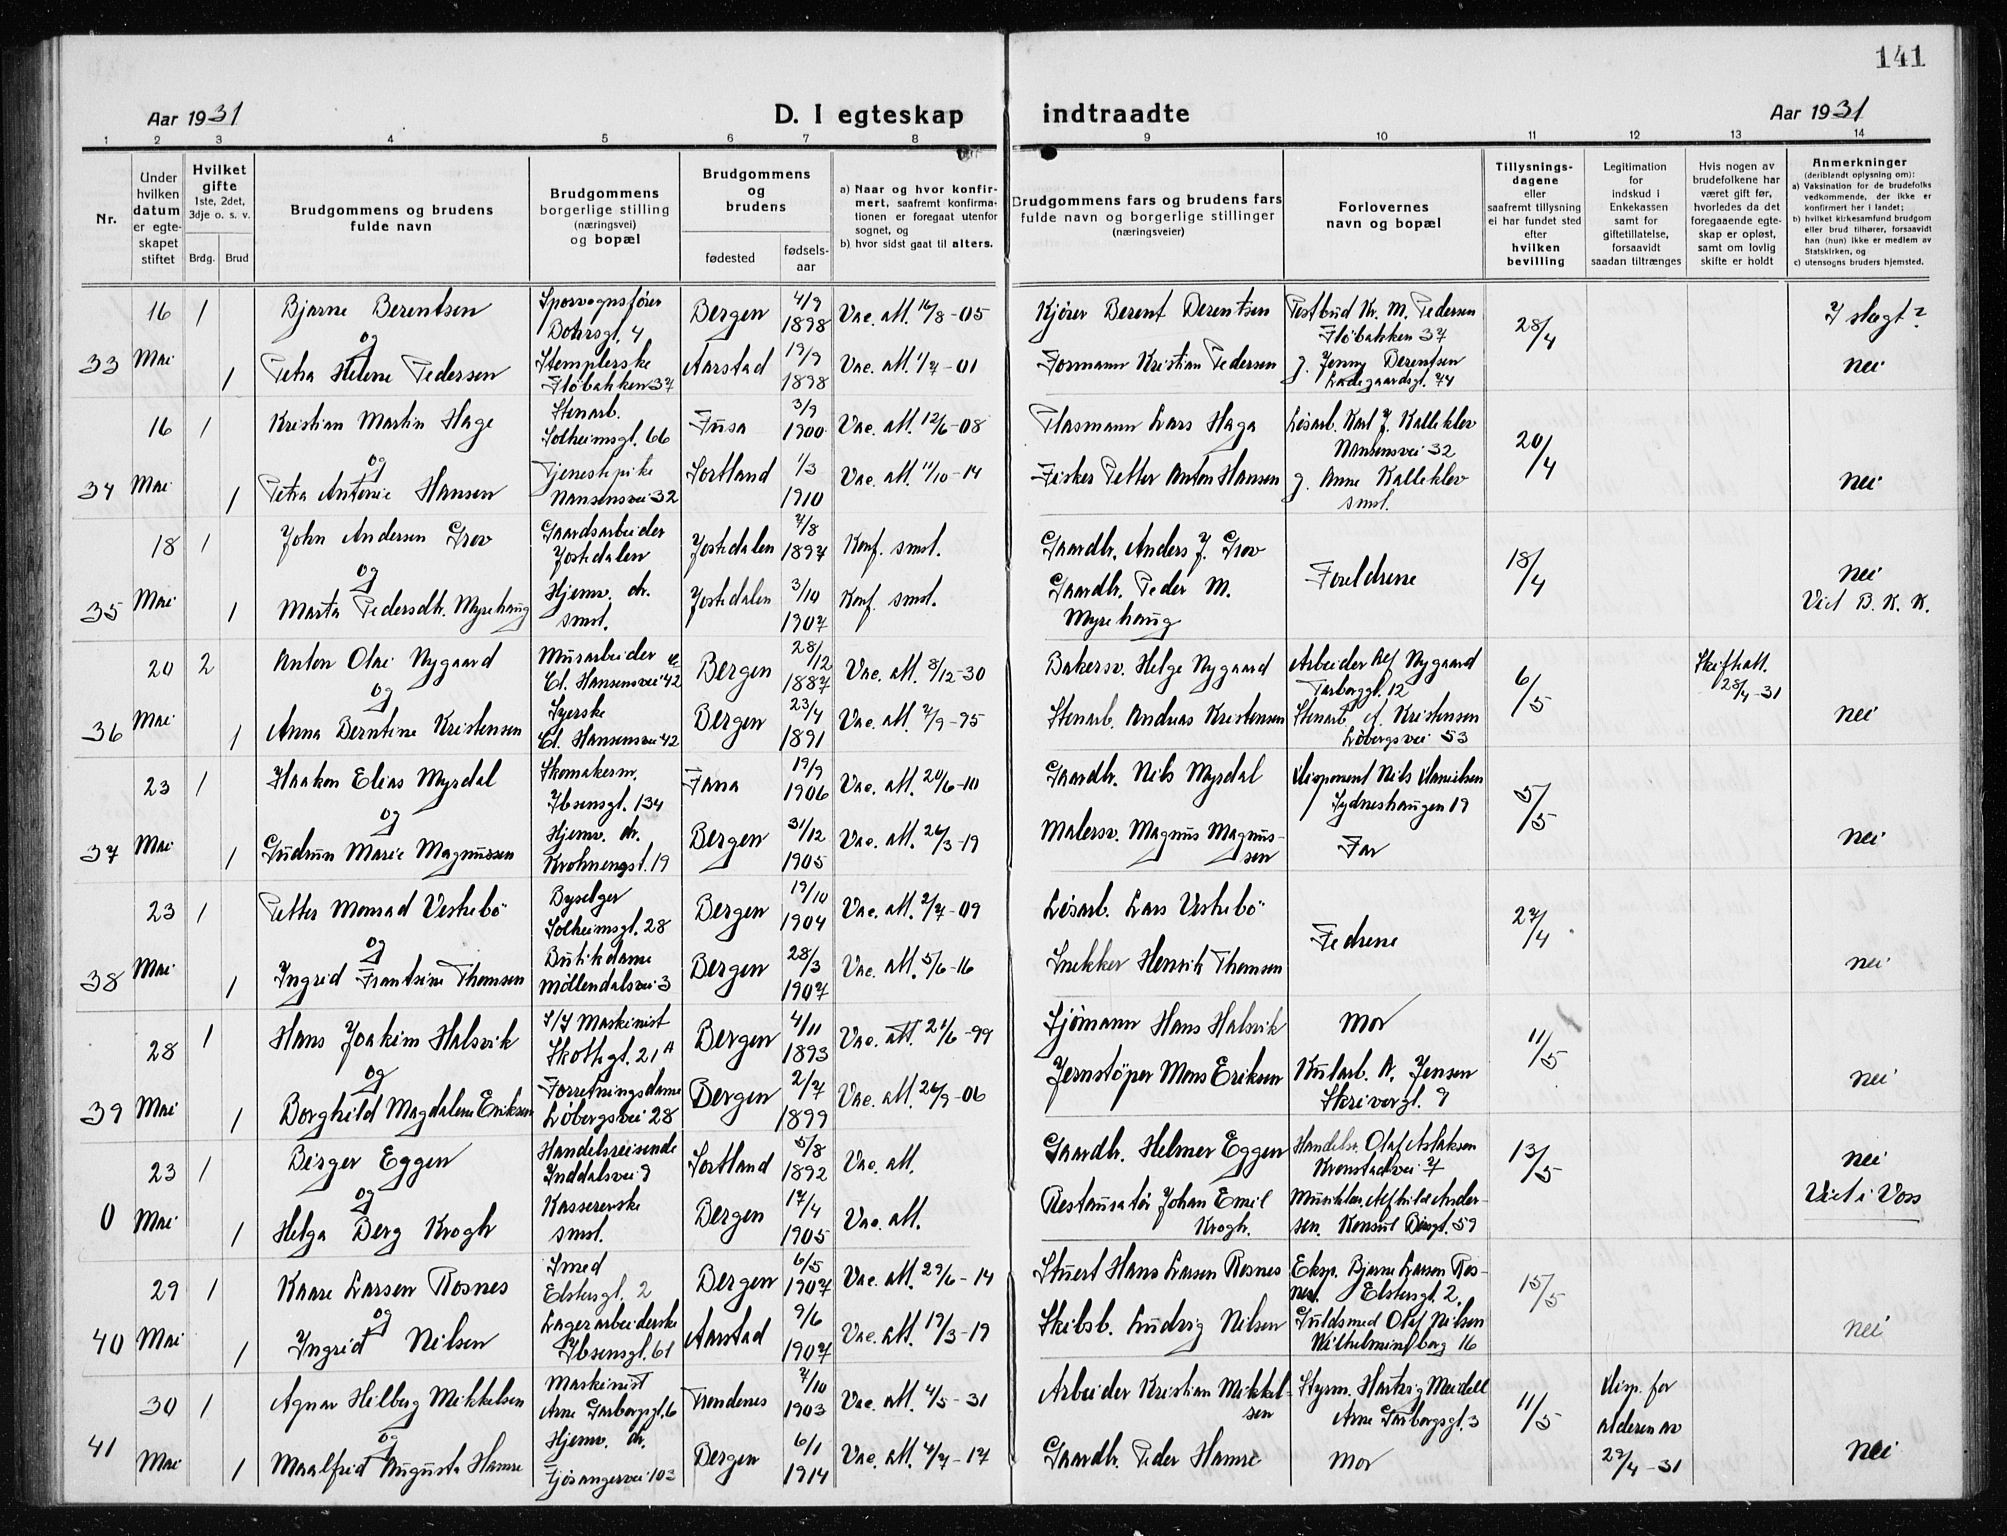 141
Aar 1931 D. I egteskap indtraadte Aar 1931
1 2 3 4 5 6 7 8 9 10 11 12 13 14
Nr.
Under hvilken datum er egteskapet stiftet
Hvilket gifte 1ste, 2det, 3dje o. s. v.
Brdg. Brud
Brudgommens og brudens fulde navn
Brudgommens borgerlige stilling (næringsvei) og bopæl
Brudgommens og brudens
fødested fødsels-aar
a) Naar og hvor konfirmert, saafremt konfirmationen er foregaat utenfor sognet, og
b) hvor sidst gaat til alters.
Brudgommens fars og brudens fars fulde navn og borgerlige stillinger (næringsveier)
Forlovernes navn og bopæl
Tillysningsdagene eller saafremt tillysning ei har fundet sted efter hvilken bevilling
Legitimation for indskud i Enkekassen samt for giftetillatelse, forsaavidt saadan tiltrænges
Hvis nogen av brudefolkene har været gift før, hvorledes da det foregaaende egteskap er opløst, samt om lovlig skifte er holdt
Anmerkninger (deriblandt oplysning om):
a) Vaksination for de brudefolks vedkommende, der ikke er konfirmert her i landet;
b) hvilket kirkesamfund brudgom eller brud tilhører, forsaavidt han (hun) ikke er medlem av Statskirken, og
c) utensogns bruders hjemsted.
33 16 Mai 1 Bjarne Berentsen Sporvognsfører Dohrsgt. 4 Bergen 4/9 1898 Vac. att. 16/8-05 Kjører Berent Berentsen Postbud Kr. M. Pedersen Fløbakken 37 28/4 I slegt?
og
1 Petra Helene Pedersen Stemplerske Fløbakken 37 Aarstad 19/9 1898 Vac. att. 1/7-01 Formann Kristian Pedersen g. Jenny Berentsen Ladegaardsgt. 74 nei
34 16 Mai 1 Kristian Martin Hage Stenarb. Solheimsgt. 66 Fusa 3/9 1900 Vac. att. 12/6-08 Plasmann Lars Haga Løsarb. Karl J. Kalleklev Nansensvei 32 20/4
og
1 Petra Antonie Hansen Tjenestepike Nansensvei 32 Sortland 1/3 1910 Vac. att. 11/10-14 Fisker Petter Anton Hansen g. Anne Kalleklev smst. nei
35 18 Mai 1 John Andersen Grov Gaardsarbeider Jostedalen Jostedalen 7/8 1897 Konf. smst. Gaardbr. Anders J. Grov Foreldrene 18/4 nei
og
1 Marta Pedersdtr. Myrehaug Hjemv. dtr. smst. Jostedalen 3/10 1907 Konf. smst. Gaardbr. Peder M. Myrehaug Viet B. K. K.
36 20 Mai 2 Anton Olai Nygaard Murarbeider Cl. Hansensvei 42 Bergen 28/12 1887 Vac. att. 8/12-30 Bakersv. Helge Nygaard Arbeider Alf Nygaard Tarborggt. 12 6/5 Skifteatt. 28/4-31
og
1 Anna Berntine Kristensen Syerske Cl. Hansensvei 42 Bergen 23/4 1891 Vac. att. 7/9-95 Stenarb. Andreas Kristensen Stenarb. A. Kristensen Løbergsvei 53 nei
37 23 Mai 1 Haakon Elias Myrdal Skomakerm. Ibsensgt. 134 Fana 19/9 1906 Vac. att. 20/6-10 Gaardbr. Nils Myrdal Disponent Nils Danielsen Sydneshaugen 19 5/5
og
1 Gudrun Marie Magnussen Hjemv. dtr. Krohnengst. 19 Bergen 31/12 1905 Vac. att. 26/3-19 Malersv. Magnus Magnussen Far nei
38 23 Mai 1 Petter Monrad Vestrebö Byselger Solheimsgt. 28 Bergen 19/10 1904 Vac. att. 2/7-09 Løsarb. Lars Vestrebö Fedrene 27/4
og
1 Ingrid Frantsine Thomsen Butikdame Möllendalsvei 3 Bergen 28/3 1907 Vac. att. 5/6-16 Snekker Henrik Thomsen nei
39 28 Mai 1 Hans Joakim Halsvik S/S Maskinist Skottegt. 21A Bergen 4/11 1893 Vac. att. 21/6-99 Sjömann Hans Halsvik Mor 11/5
og
1 Borghild Magdalene Eriksen Forretningsdame Løbergsvei 28 Bergen 2/7 1899 Vac. att. 26/9-06 Jernstöper Mons Eriksen Kularb. A. Jensen Skrivergt. 9 nei
0 23 Mai 1 Birger Eggen Handelsreisende Inddalsvei 9 Sortland 5/8 1892 Vac. att. Gaardbr. Helmer Eggen Handelsr. Olaf Aslaksen Kronstadvei 7 13/5 nei
og
1 Helga Berg Krogh Kassererske smst. Bergen 17/4 1905 Vac. att. Restauratör Johan Emil Krogh. Andersen. Konsul Börsgt. 59 Viet i Voss
40 29 Mai 1 Kaare Larsen Rosnes Smed Elstersgt. 2 Bergen 6/5 1907 Vac. att. 29/6-14 Stuert Hans Larsen Rosnes Eksp. Bjarne Larsen Rosnes. Elstersgt. 2. 15/5
og
1 Ingrid Nilsen Lagerarbeiderske Ibsensgt. 61 Aarstad 9/6 1907 Vac. att. 19/3-19 Skibsb. Ludvig Nilsen Guldsmed Olaf Nilsen Wilhelmineborg 16 nei
41 30 Mai 1 Agnar Hilberg Mikkelsen Maskinist Arne Garborgsgt. 6 Trondenes 7/10 1903 Vac. att. 4/5-31 Arbeider Kristian Mikkelsen Styrm. Hartvig Meidell Arne Garborgsgt. 3 11/5 Disp. for alderen av 29/4-31
og
1 Maalfrid Augusta Hamre Hjemv. dtr. Fjøsangervei 103 Bergen 6/1 1914 Vac. att. 4/7-17 Gaardbr. Peder Hamre Mor nei